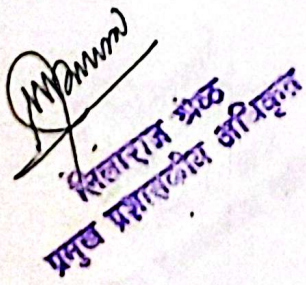 सिताराज श्रेष्ठ
प्रमुख प्रशासकीय अधिकृत